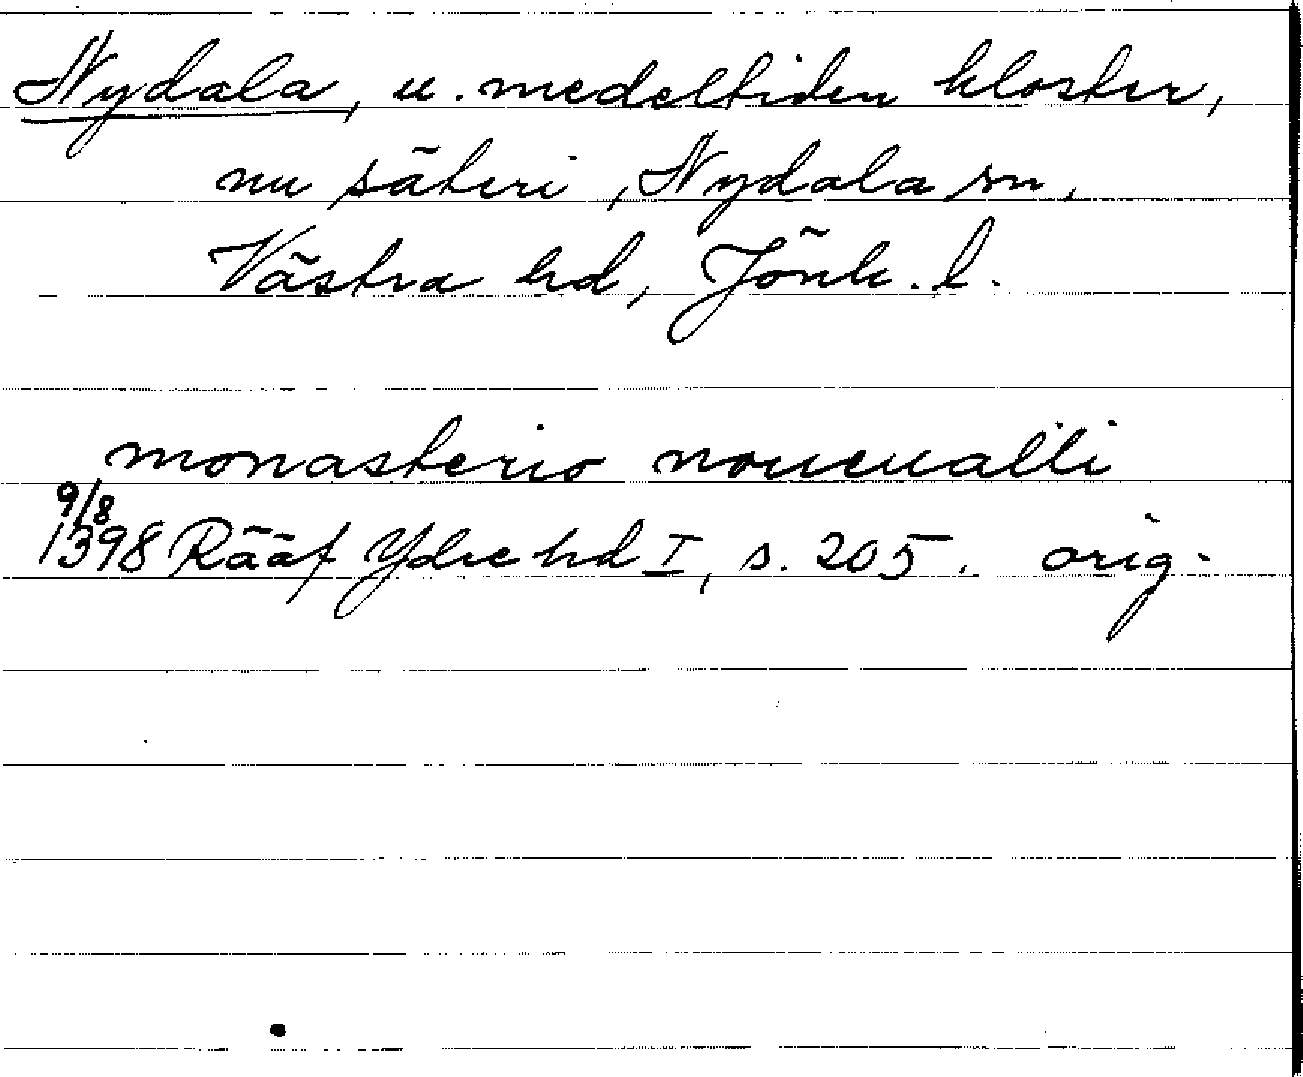 Nydala, u. medeltiden kloster,
nu säteri, Nydala sn,
Västra hd, Jönk. l.
monasterio noueualli
9/8
1398 Rääf Ydre hd I, s. 205. orig.